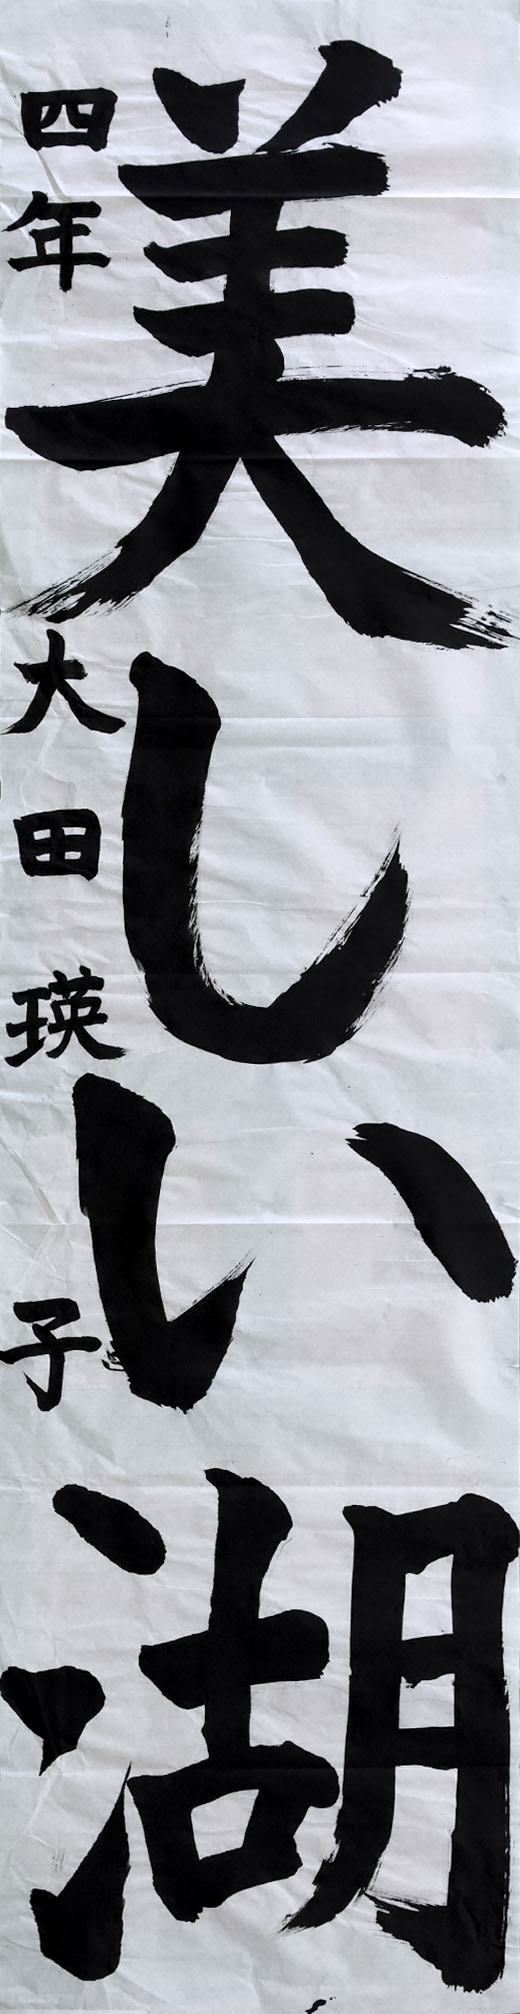 美しい湖
四年 大田瑛子